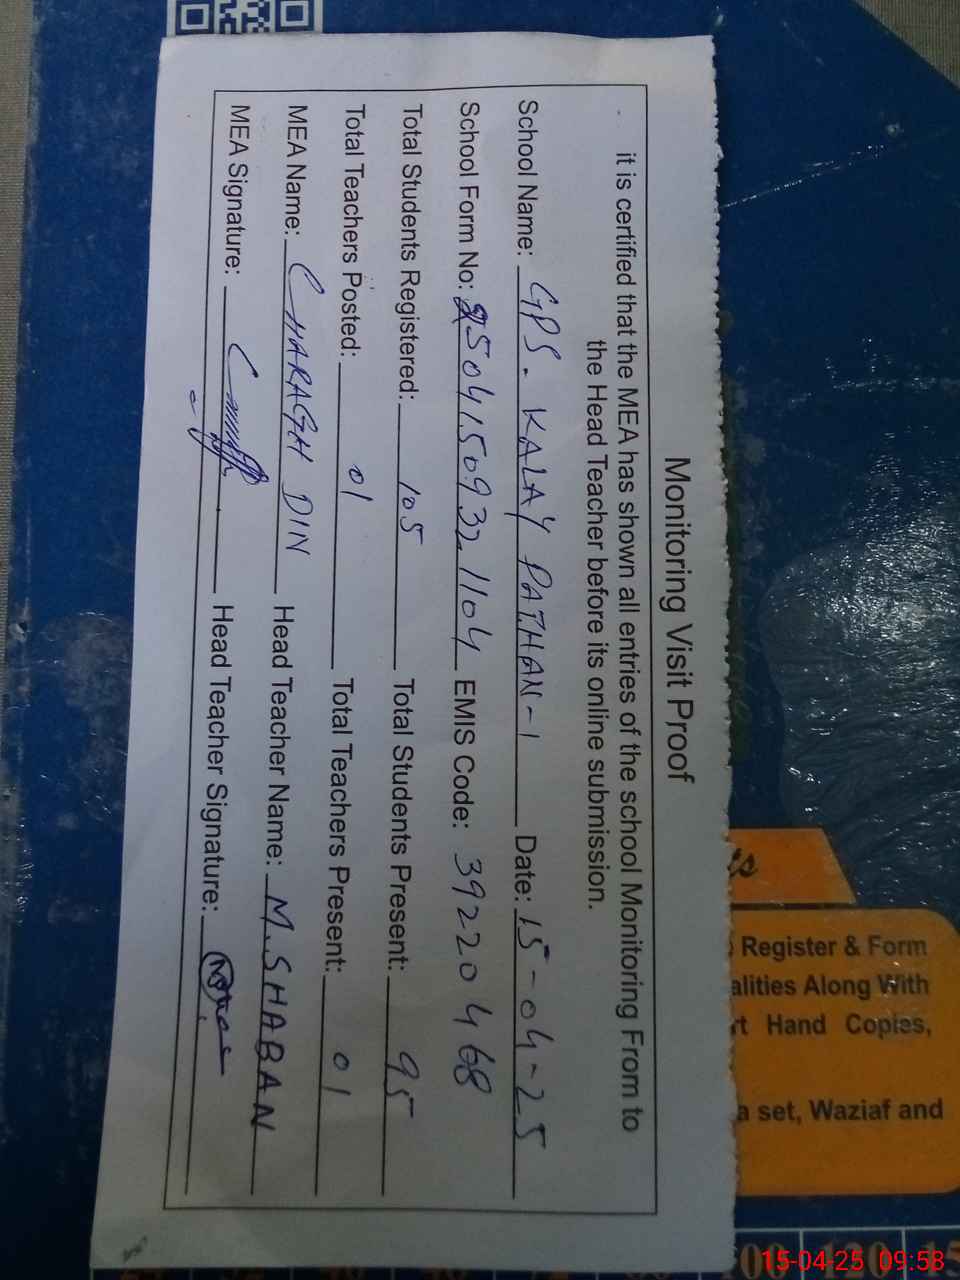 Monitoring Visit Proof
it is certified that the MEA has shown all entries of the school Monitoring From to
the Head Teacher before its online submission.
School Name: GPS - KALAY PATHAN-1 Date: 15-04-25
School Form No: 25041509321104 EMIS Code: 39220468
Total Students Registered: 105 Total Students Present: 95
Total Teachers Posted: 01 Total Teachers Present: 01
MEA Name: CHARAGH DIN Head Teacher Name: M.SHABAN
MEA Signature: Head Teacher Signature:
Register & Form
alities Along With
rt Hand Copies,
a set, Waziaf and
15-04-25 09:58